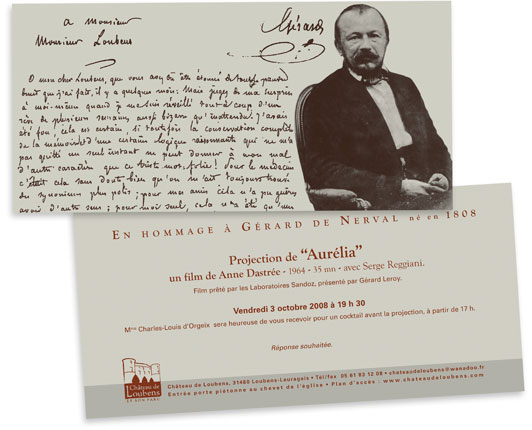 a Monsieur
Monsieur Loubens
Gérard
O mon cher Loubens, que vous avez dû être étonné de tout le pauvre
bruit que j'ai fait, il y a quelques mois. Mais jugez de ma surprise
à moi-même quand je me suis réveillé tout à coup d'un
rêve de plusieurs semaines aussi bizarre qu'inattendu. J'avais
été fou, cela est certain, si toutefois la conservation complète
de la mémoire et d'une certaine logique raisonnante qui ne m'a
pas quitté un seul instant ne peut donner à mon mal
d'autre caractère que ce triste mot: folie! Pour le médecin
c'était cela sans doute bien qu'on m'ait toujours
des synonymes plus polis; pour mes amis cela n'a pu guère
avoir d'autre sens; pour moi seul, cela n'a été qu'une
EN HOMMAGE À GÉRARD DE NERVAL né en 1808
Projection de “Aurélia”
un film de Anne Dastrée - 1964 - 35 mn - avec Serge Reggiani.
Film prêté par les Laboratoires Sandoz, présenté par Gérard Leroy.
Vendredi 3 octobre 2008 à 19 h 30
Mme Charles-Louis d'Orgeix sera heureuse de vous recevoir pour un cocktail avant la projection, à partir de 17 h.
Réponse souhaitée.
Château de
Loubens
ET SON PARC
Château de Loubens, 31460 Loubens-Lauragais • Tél/fax 05 61 83 12 08 • chateaudeloubens@wanadoo.fr
Entrée porte piétonne au chevet de l'église • Plan d'accès : www.chateaudeloubens.com